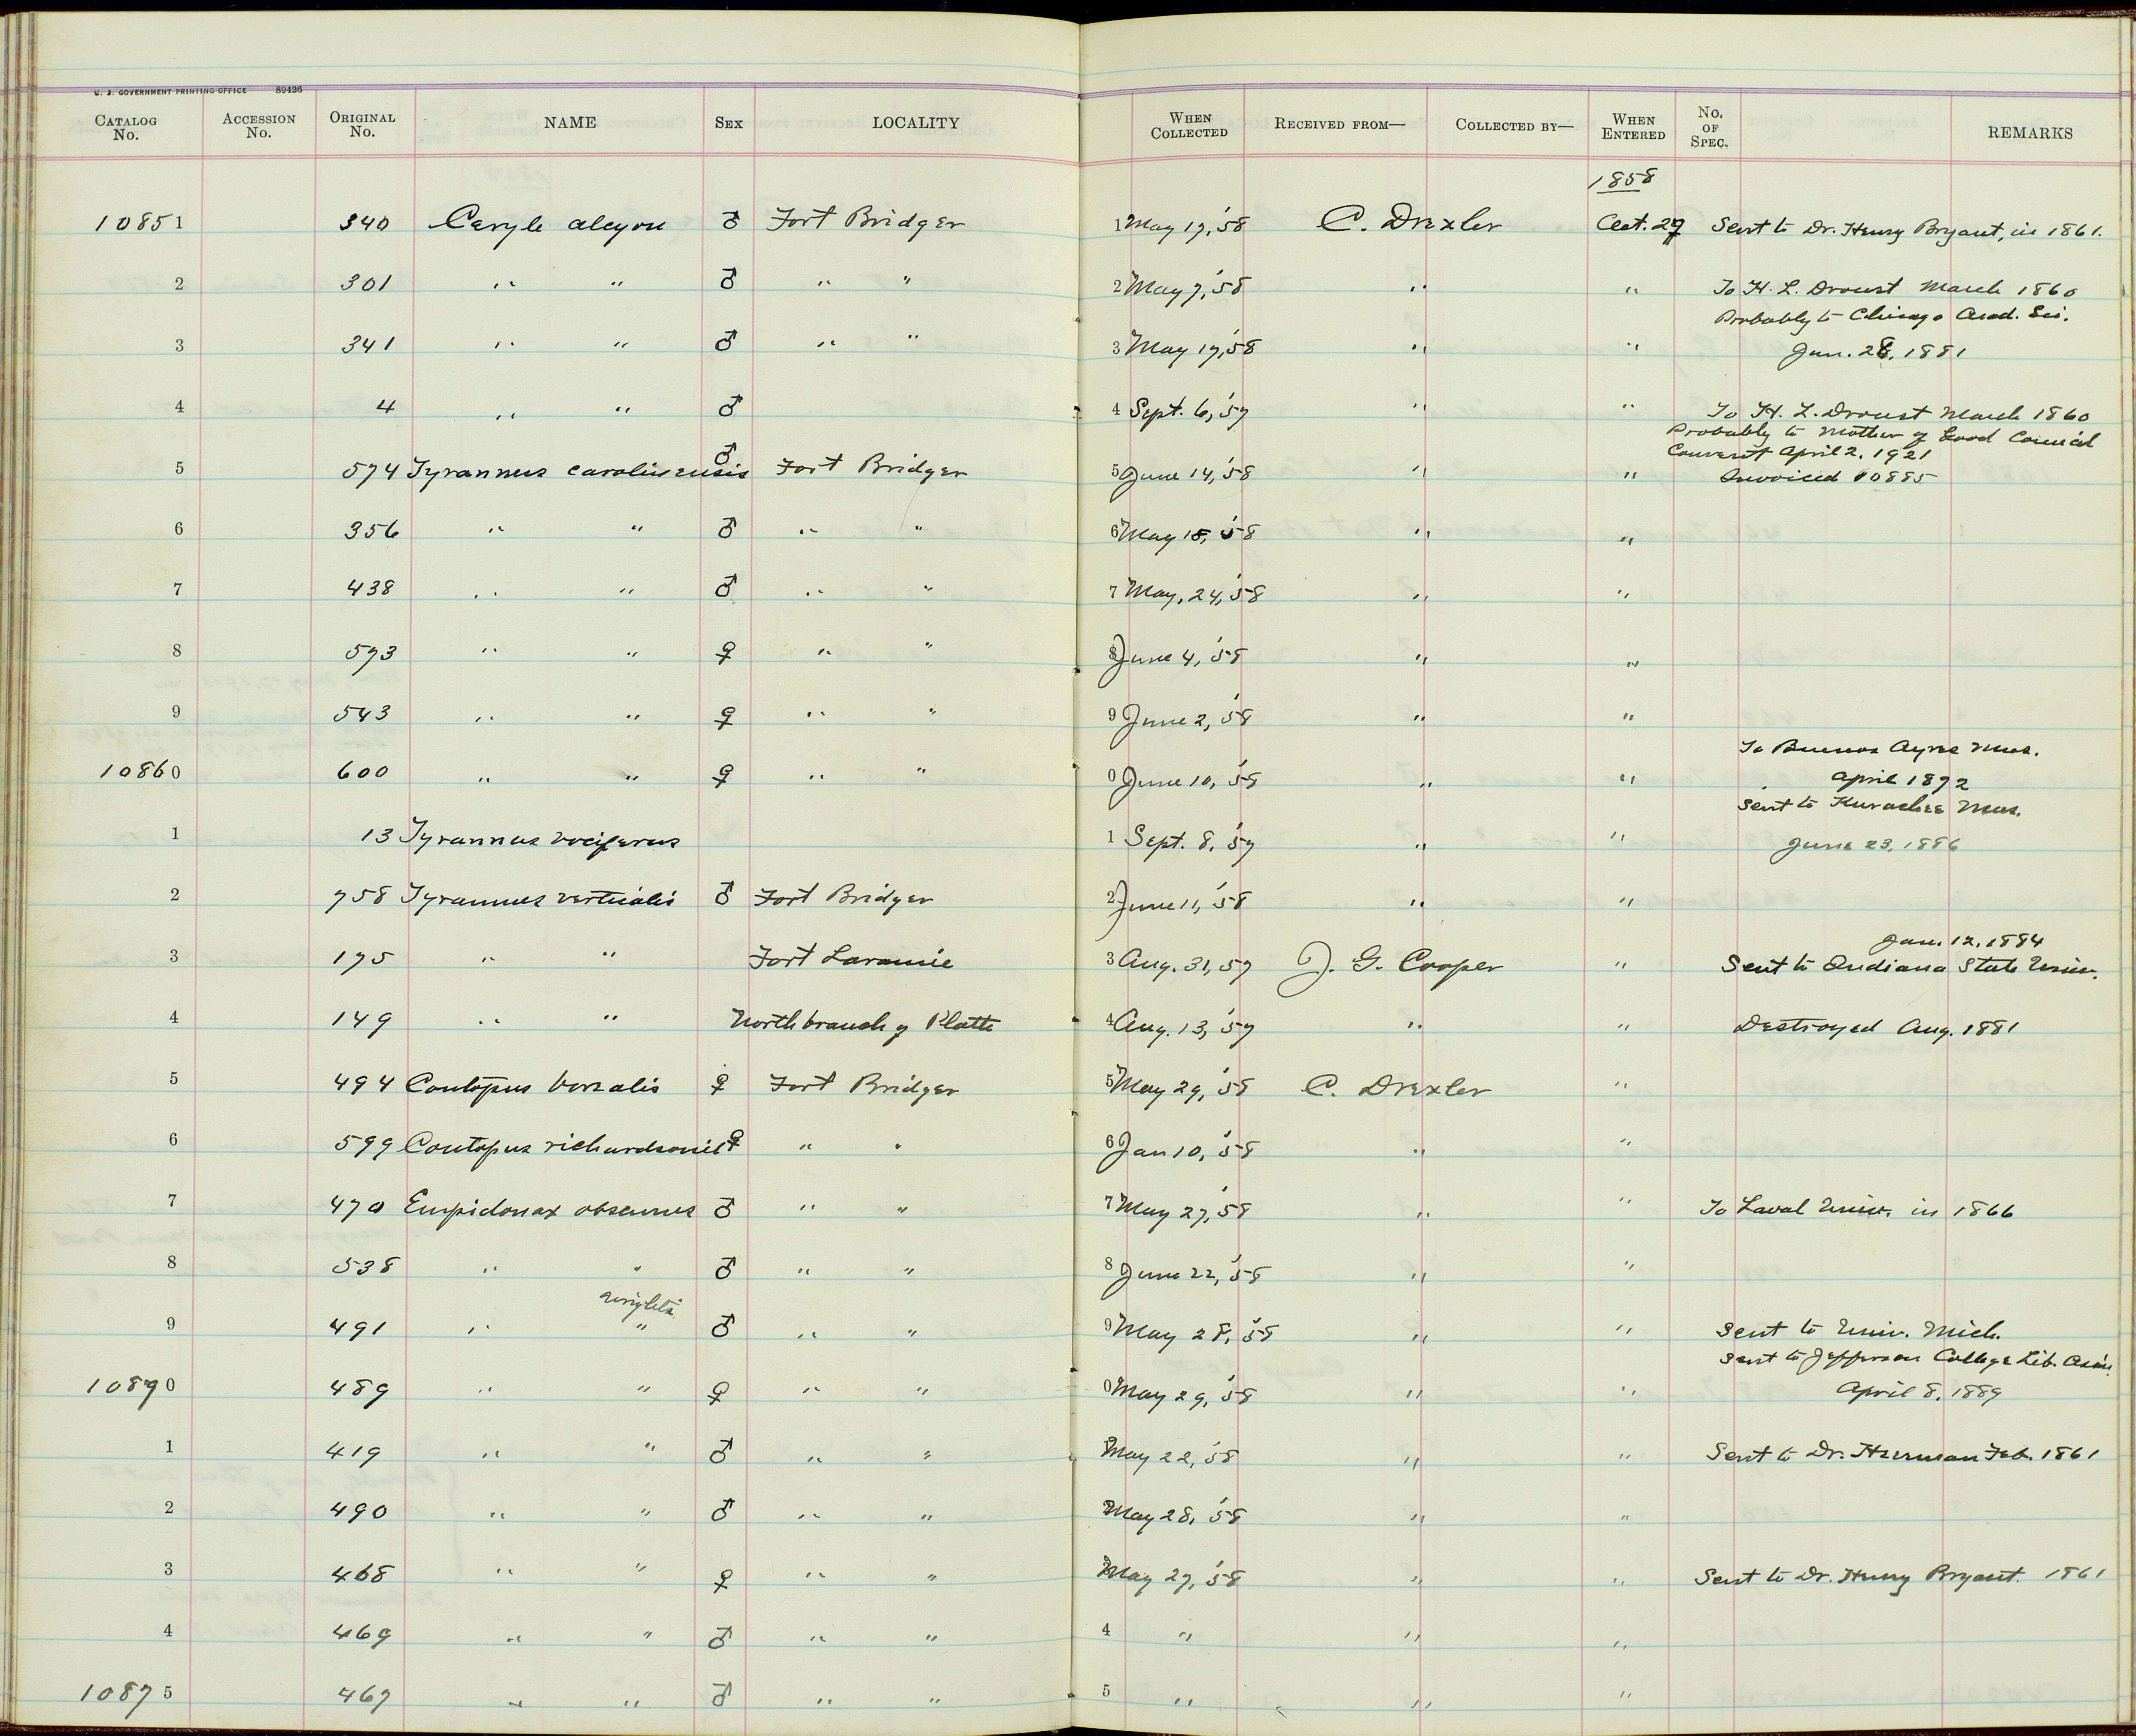 U. S. GOVERNMENT PRINTING OFFICE 89426
CATALOG No. ACCESSION No. ORIGINAL No. NAME SEX LOCALITY WHEN COLLECTED RECEIVED FROM— COLLECTED BY— WHEN ENTERED No. OF SPEC. REMARKS
1858
10851 340 Ceryle alcyon ♂ Fort Bridger 1 May 17, '58 C. Drexler Oct. 27 Sent to Dr. Henry Bryant, in 1861.
2 301 " " ♂ " " 2 May 7, '58 " " To H. L. Drouet March 1860
Probably to Chicago Acad. Sci.
3 341 " " ♂ " " 3 May 17, '58 " " Jan. 28, 1881
4 4 " " ♂ 4 Sept. 6, '57 " " To H. L. Drouet March 1860
Probably to Mother of Good Council
Convent April 2, 1921
5 574 Tyrannus carolinensis ♂ Fort Bridger 5 June 14, '58 " " Invoiced 10885
6 356 " " ♂ " " 6 May 18, '58 " "
7 438 " " ♂ " " 7 May, 24, '58 " "
8 573 " " ♀ " " 8 June 4, '58 " "
9 543 " " ♀ " " 9 June 2, '58 " "
To Buenos Ayres Mus.
10860 600 " " ♀ " " 0 June 10, '58 " " April 1872
Sent to Kurachee Mus.
1 13 Tyrannus vociferus 1 Sept. 8, '57 " " June 23, 1886
2 758 Tyrannus verticalis ♂ Fort Bridger 2 June 11, '58 " "
Jan. 12, 1884
3 175 " " Fort Laramie 3 Aug. 31, 57 J. G. Cooper " Sent to Indiana State Univ.
4 149 " " North branch of Platte 4 Aug. 13, '57 " " Destroyed Aug. 1881
5 494 Contopus borealis ♀ Fort Bridger 5 May 29, '58 C. Drexler "
6 599 Contopus richardsonii ♀ " " 6 Jan 10, '58 " "
7 470 Empidonax obscurus ♂ " " 7 May 27, '58 " " To Laval Univ. in 1866
8 538 " " ♂ " " 8 June 22, '58 " "
wrightii
9 491 " " ♂ " " 9 May 28, '58 " " Sent to Univ. Mich.
Sent to Jefferson College Lib. Assn.
10870 489 " " ♀ " " 0 May 29, '58 " " April 8, 1889
1 419 " " ♂ " " May 22, '58 " " Sent to Dr. Heerman Feb. 1861
2 490 " " ♂ " " May 28, '58 " "
3 468 " " ♀ " " May 27, '58 " " Sent to Dr. Henry Bryant. 1861
4 469 " " ♂ " " 4 " " "
10875 467 " " ♂ " " 5 " " "